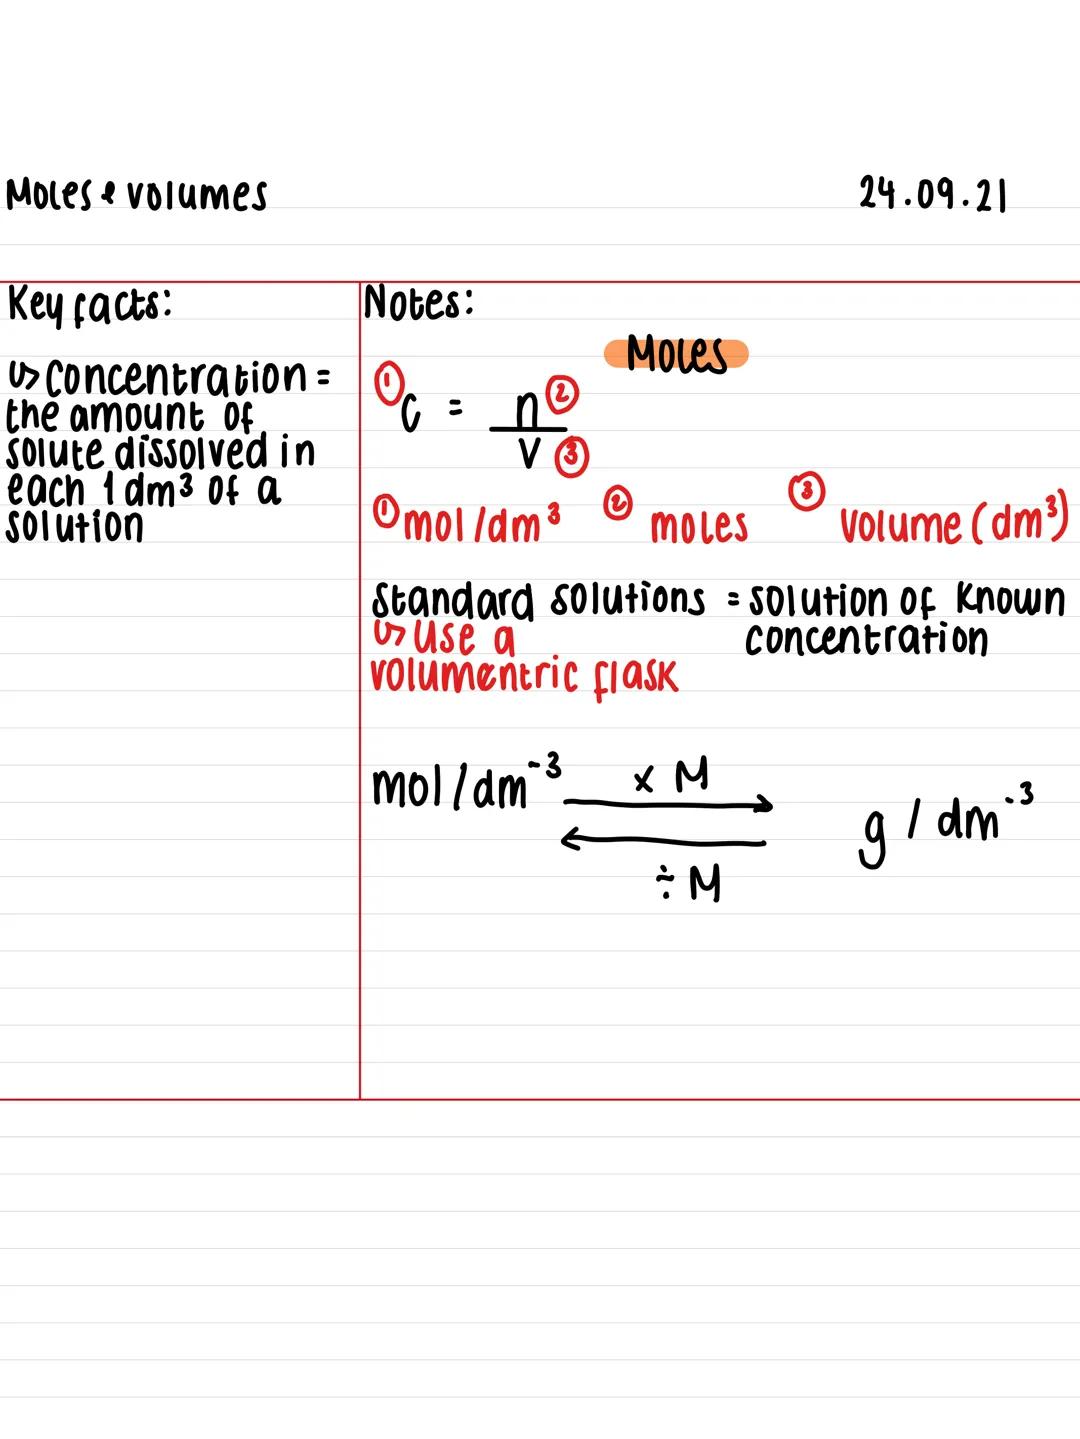 Moles & volumes
24.09.21
Key facts:
↳ Concentration =
the amount of
solute dissolved in
each 1dm³ of a
solution
Notes:
Moles
① C = n ②
V ③
① mol/dm³ ② moles ③ volume (dm³)
Standard solutions = solution of known
concentration
↳ use a
volumentric flask
mol/dm⁻³ × M g/dm⁻³
÷ M